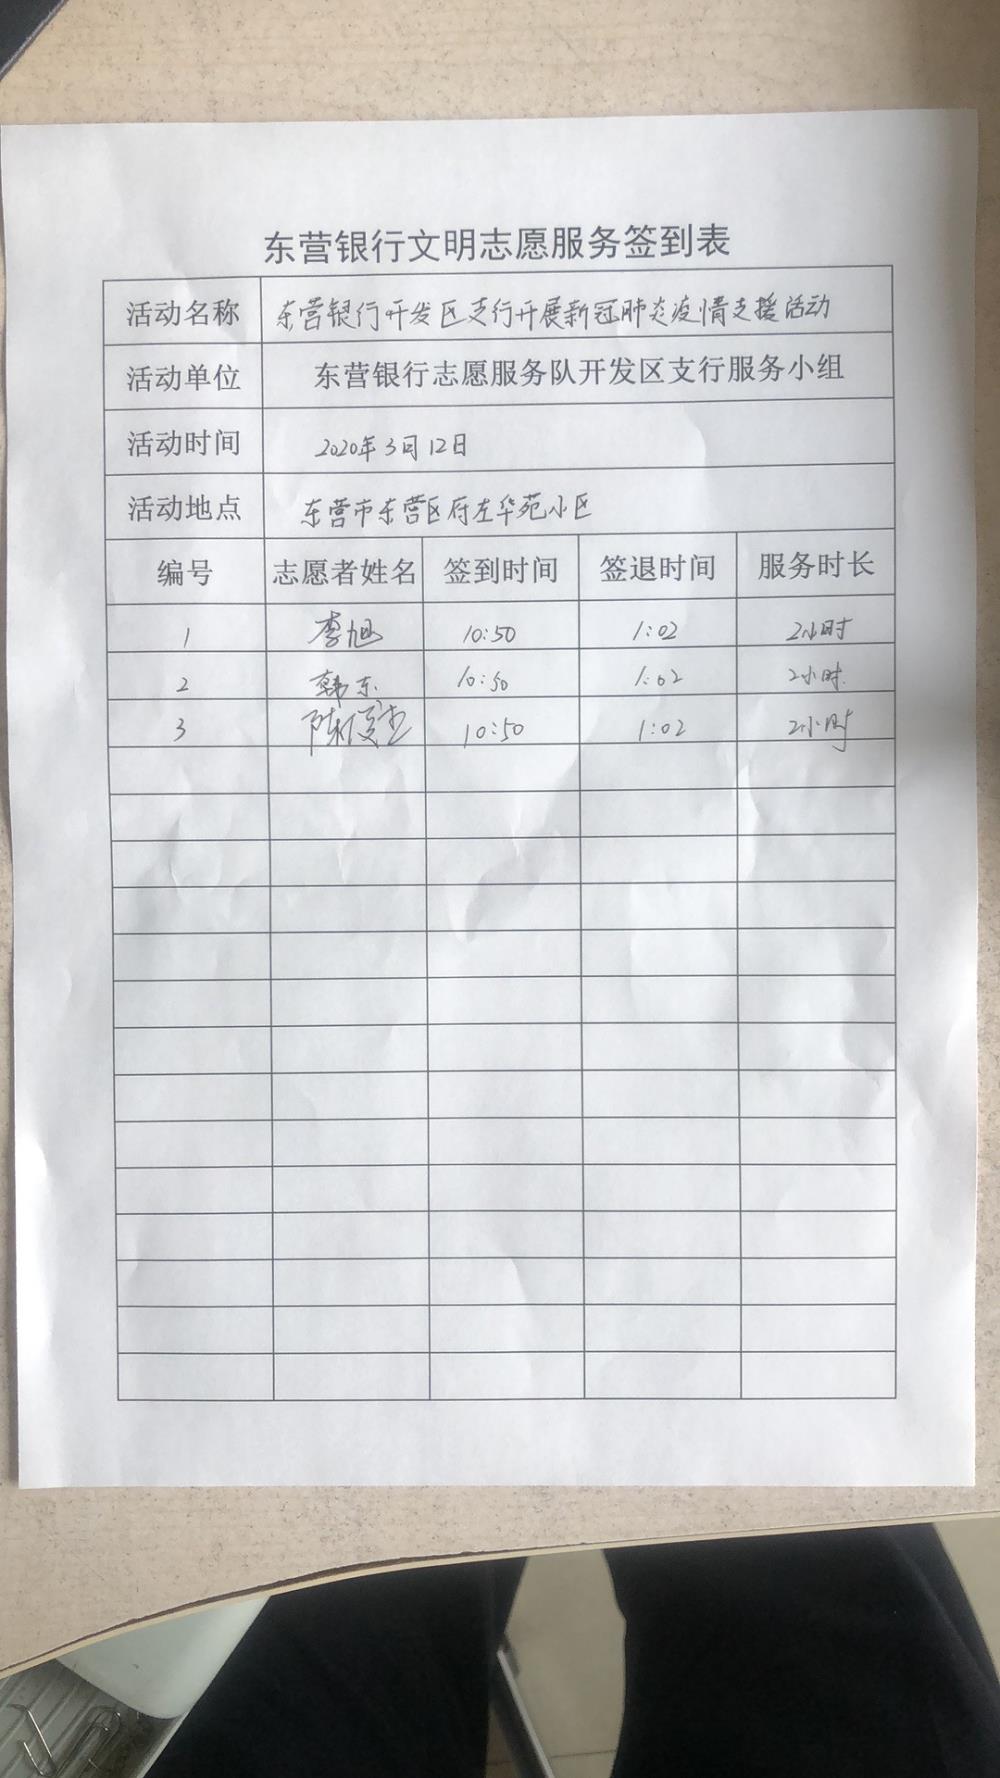 东营银行文明志愿服务签到表
活动名称 东营银行开发区支行开展新冠肺炎疫情支援活动
活动单位 东营银行志愿服务队开发区支行服务小组
活动时间 2020年3月12日
活动地点 东营市东营区府左华苑小区
编号 志愿者姓名 签到时间 签退时间 服务时长
1 李旭 10:50 1:02 2小时
2 韩东 10:50 1:02 2小时
3 陈俊杰 10:50 1:02 2小时